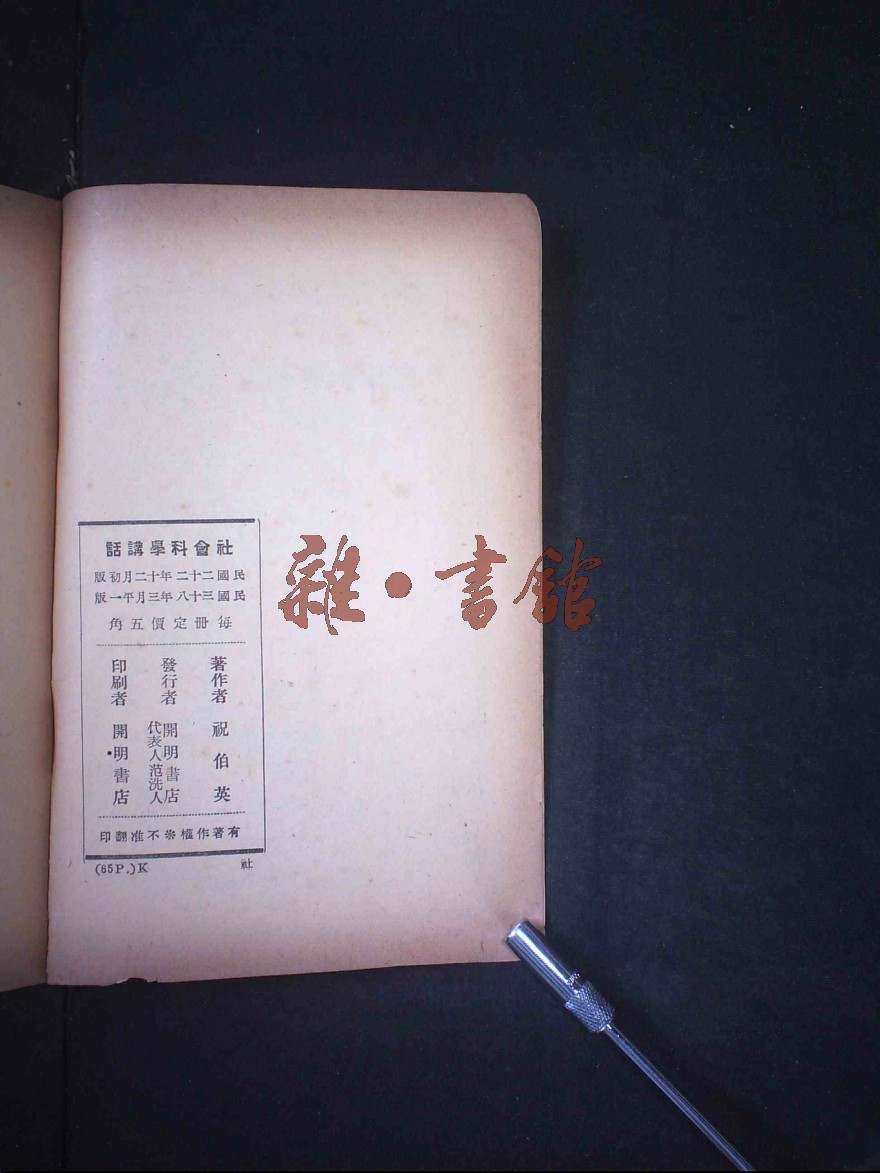 社會科學講話
民國二十二年十二月初版
民國三十八年三月平一版
每冊定價五角
著作者 祝伯英
發行者 開明書店
代表人范洗人
印刷者 開明書店
有著作權※不准翻印
社
(65P.)K
雜·書館